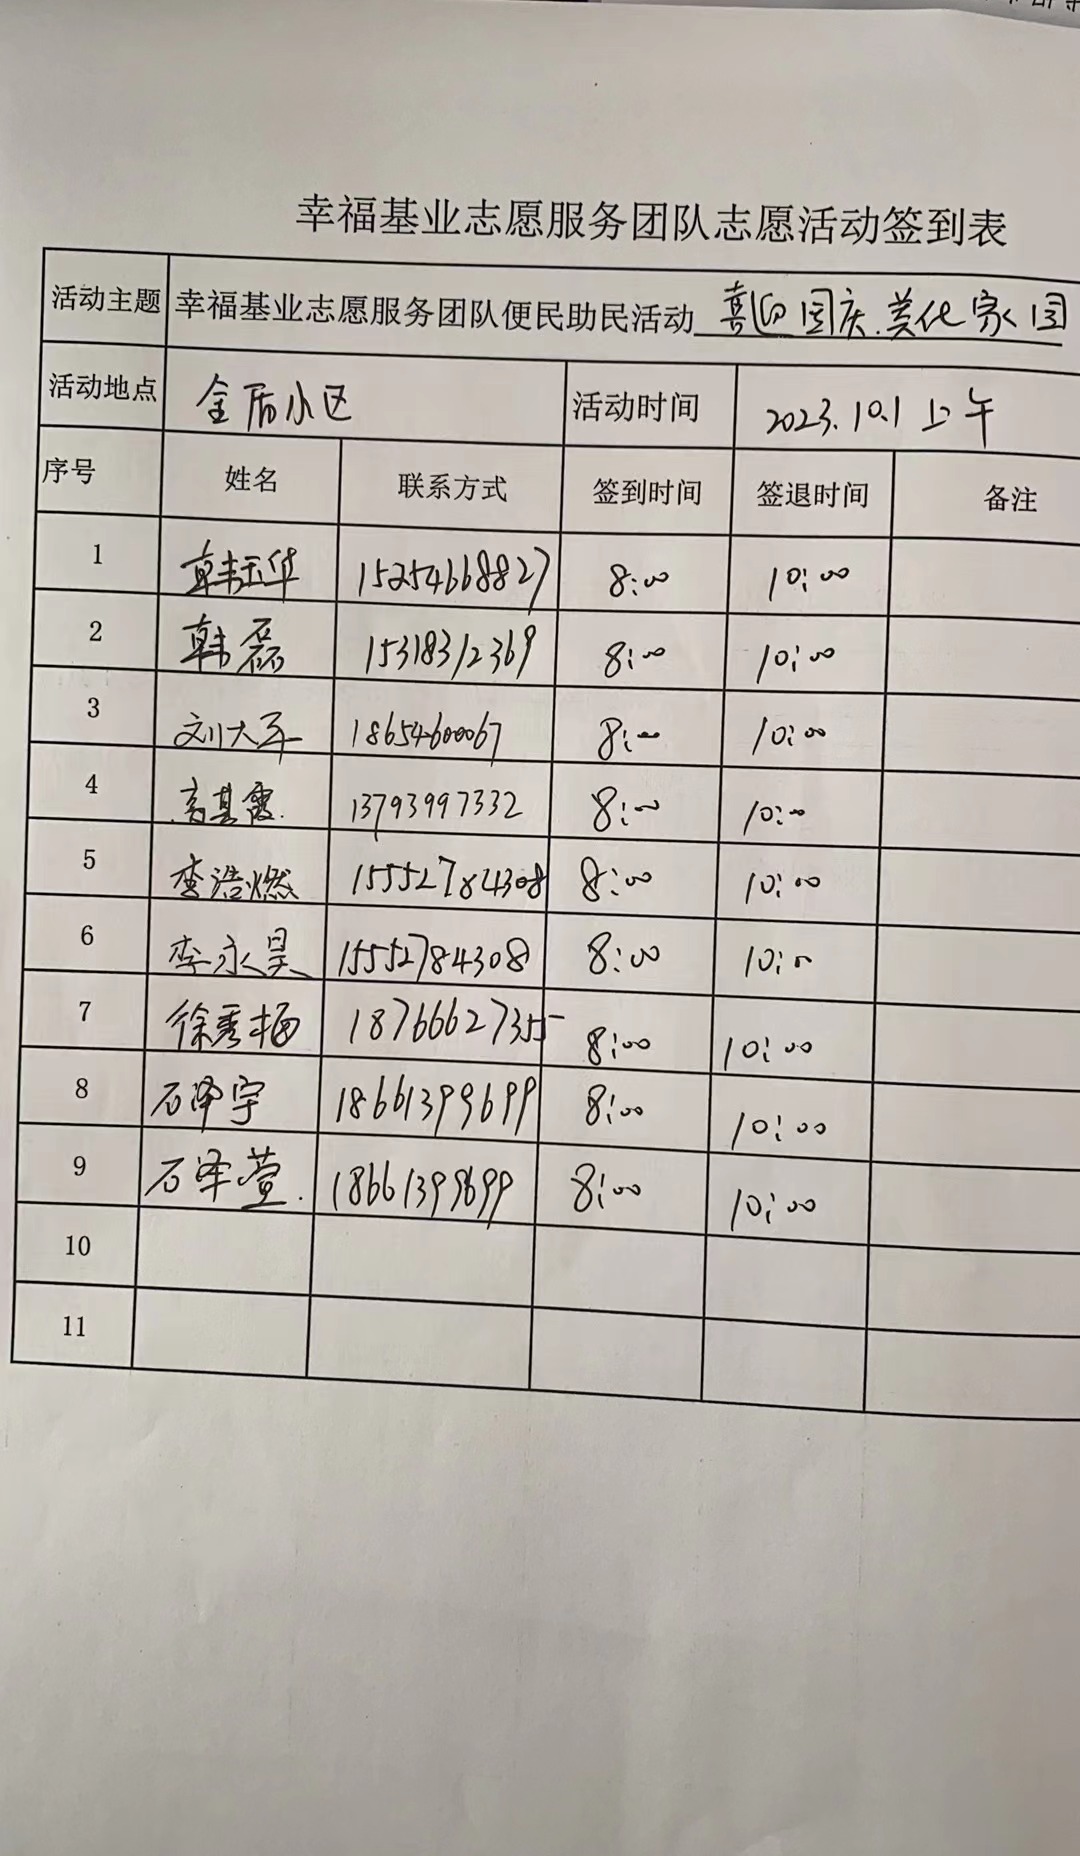 幸福基业志愿服务团队志愿活动签到表
活动主题 幸福基业志愿服务团队便民助民活动 喜迎国庆.美化家园
活动地点 小区 活动时间 2023.10.1 上午
序号 姓名 联系方式 签到时间 签退时间 备注
1 韩玉华 15254668827 8:00 10:00
2 韩磊 15318312369 8:00 10:00
3 刘大军 18654600067 8:00 10:00
4 高其霞 13793997332 8:00 10:00
5 李浩燃 15552784308 8:00 10:00
6 李永昊 15552784308 8:00 10:00
7 徐秀梅 18766627355 8:00 10:00
8 石泽宇 18661399699 8:00 10:00
9 石泽萱. 18661399699 8:00 10:00
10
11